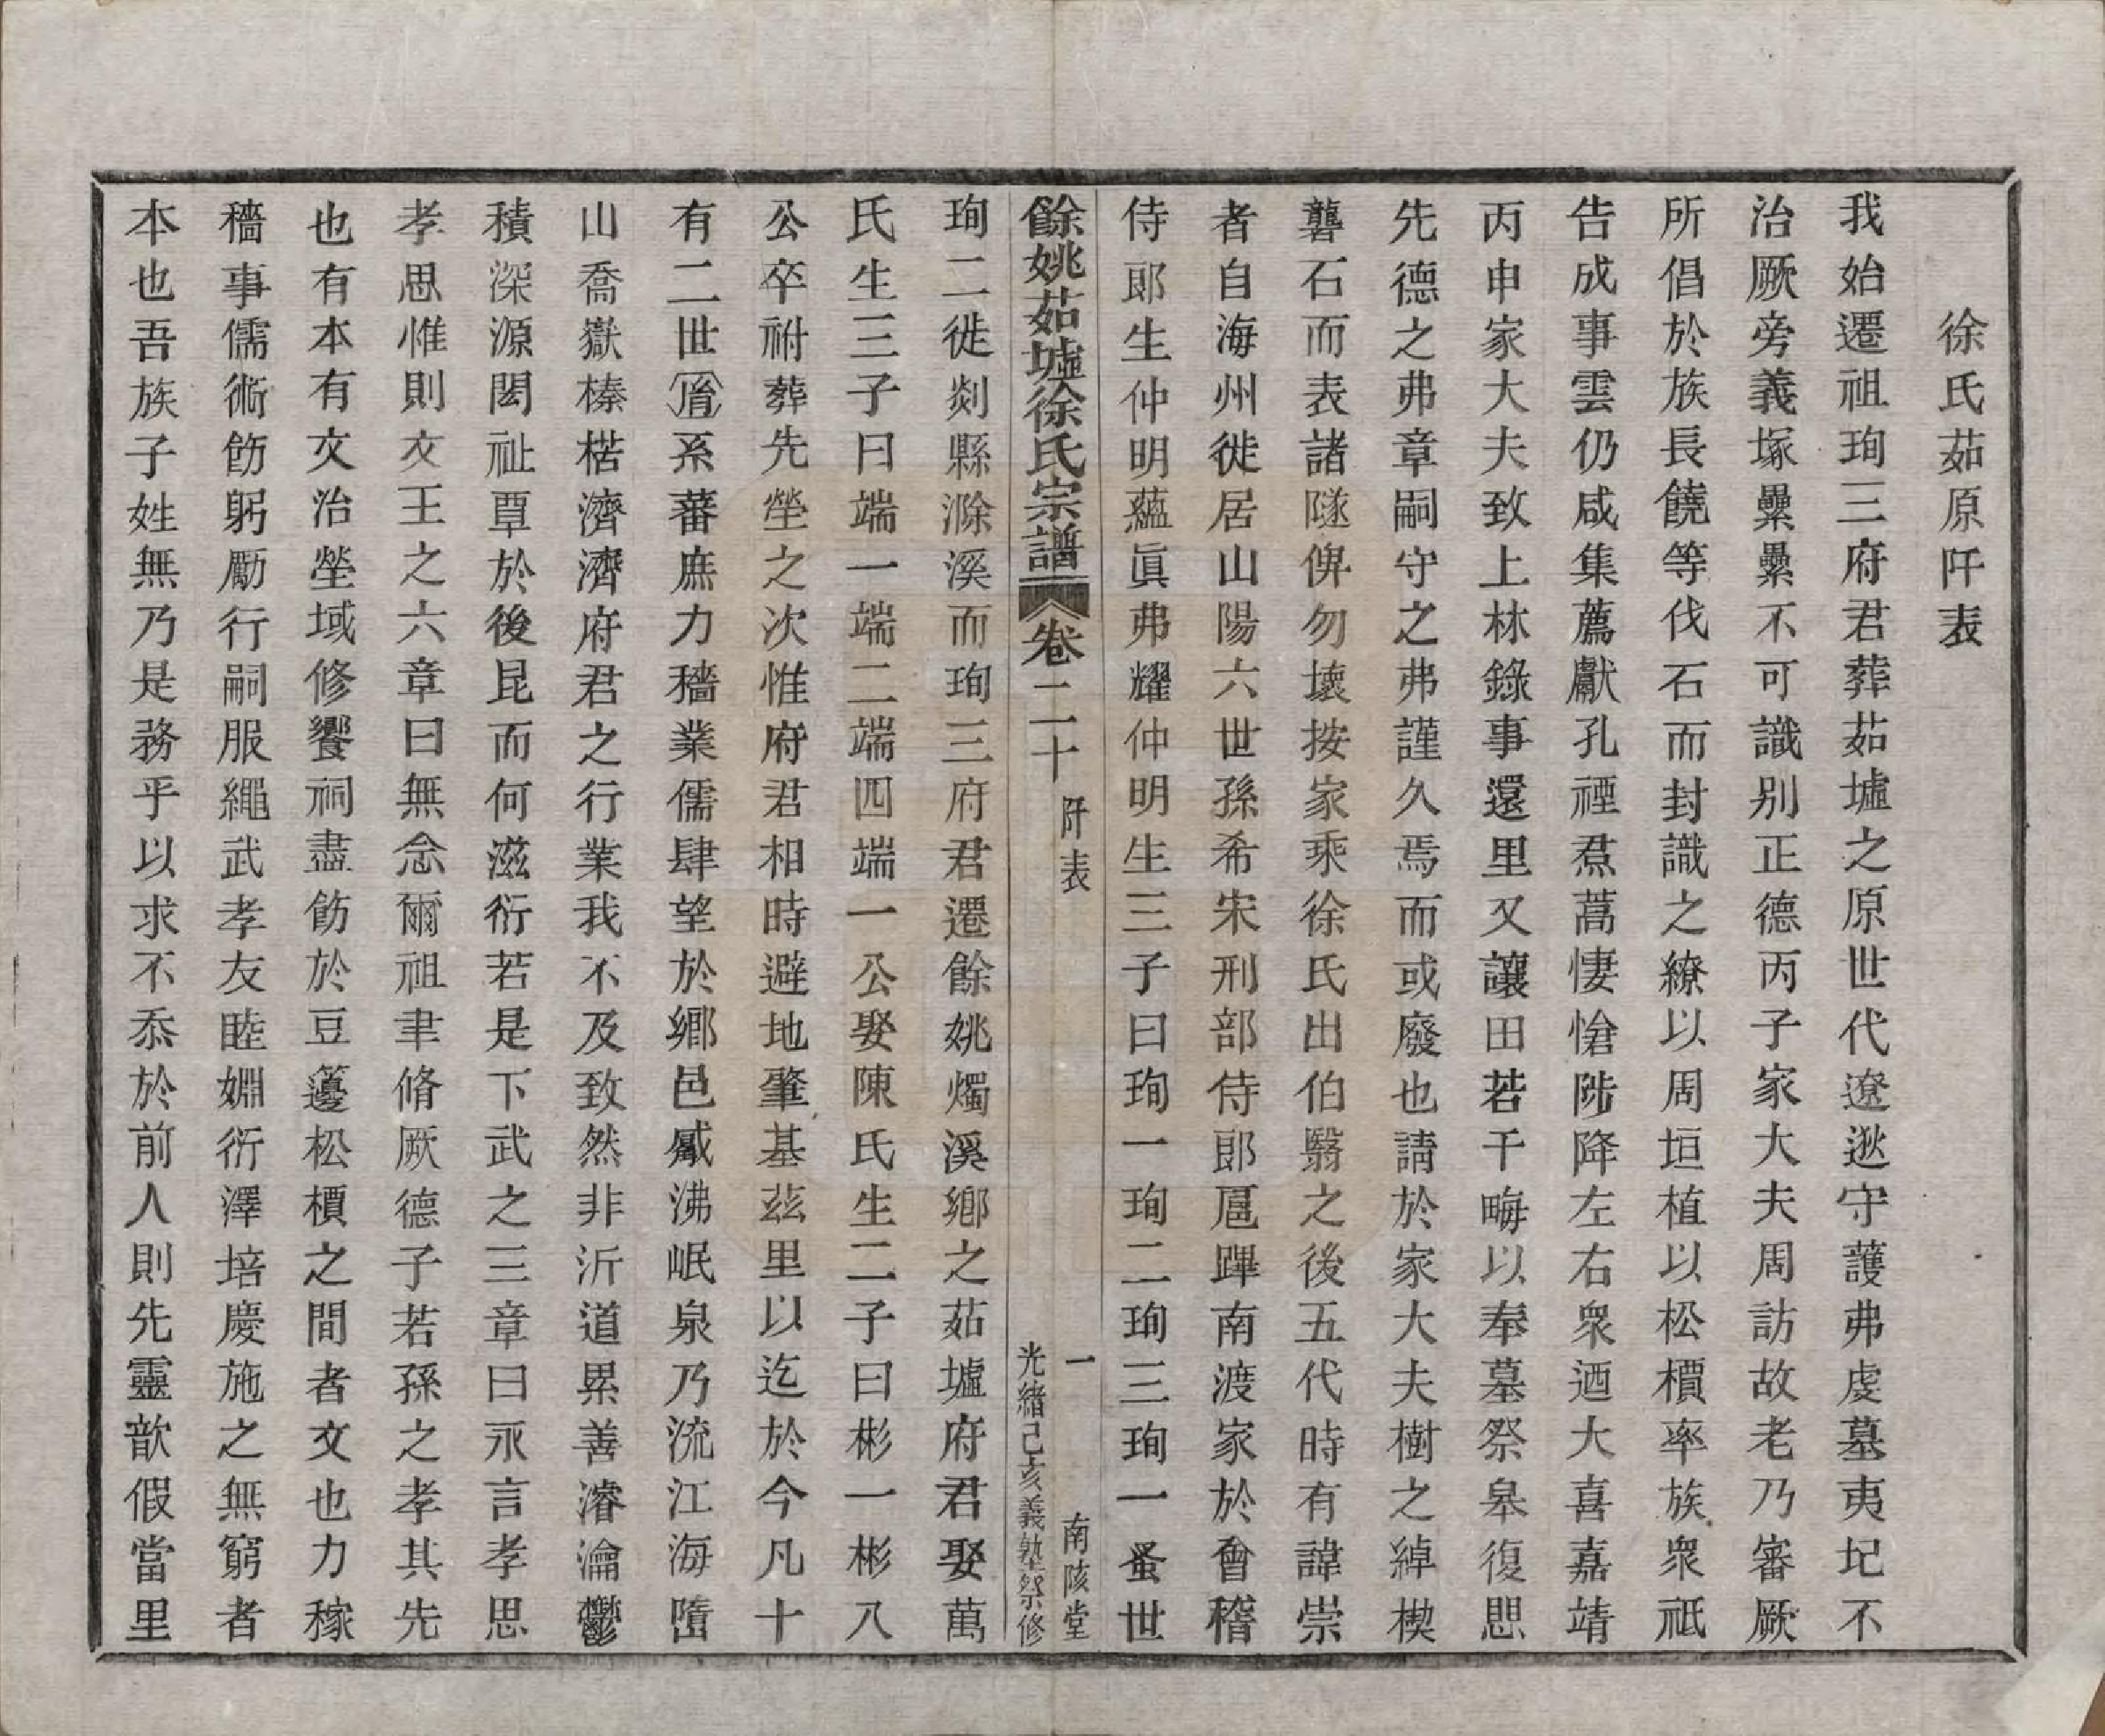 徐氏茹原阡表
我始遷祖珣三府君葬茹墟之原世代遼逖守護弗虔墓夷圮不
治厥旁義塚纍纍不可識別正德丙子家大夫周訪故老乃審厥
所倡於族長饒等伐石而封識之繚以周垣植以松檟率族衆祇
告成事雲仍咸集薦獻孔禋焄蒿悽愴陟降左右衆迺大喜嘉靖
丙申家大夫致上林錄事還里又讓田若干畮以奉墓祭皋復思
先德之弗章嗣守之弗謹久焉而或廢也請於家大夫樹之綽楔
礱石而表諸隧俾勿壞按家乘徐氏出伯翳之後五代時有諱崇
者自海州徙居山陽六世孫希宋刑部侍郎扈蹕南渡家於會稽
侍郎生仲明蘊眞弗耀仲明生三子曰珣一珣二珣三珣一蚤世
餘姚茹墟徐氏宗譜 卷二十 阡表 一 南陔堂
光緒己亥義塾祭修
珣二徙剡縣滁溪而珣三府君遷餘姚燭溪鄉之茹墟府君娶萬
氏生三子曰端一端二端四端一公娶陳氏生二子曰彬一彬八
公卒祔葬先塋之次惟府君相時避地肇基茲里以迄於今凡十
有二世㑞系蕃庶力穡業儒肆望於鄉邑觱沸岷泉乃流江海嶞
山喬嶽榛楛濟濟府君之行業我不及致然非沂道累善濬瀹鬱
積深源閎祉覃於後昆而何滋衍若是下武之三章曰永言孝思
孝思惟則文王之六章曰無念爾祖聿脩厥德子若孫之孝其先
也有本有文治塋域修饗祠盡飭於豆籩松檟之間者文也力稼
穡事儒術飭躬勵行嗣服繩武孝友睦婣衍澤培慶施之無窮者
本也吾族子姓無乃是務乎以求不忝於前人則先靈歆假當里